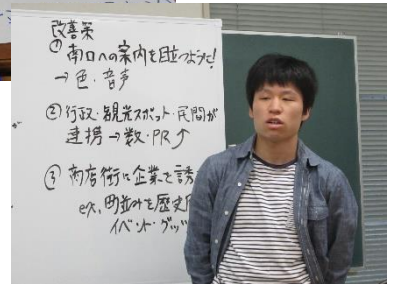 改善策
① 南口への案内を目立つように!
→ 色・音声
② 行政・観光スポット・民間が
連携 → 数・PR ↑
③ 商店街に企業を誘
ex, 町並みを歴史
イベント・グッズ